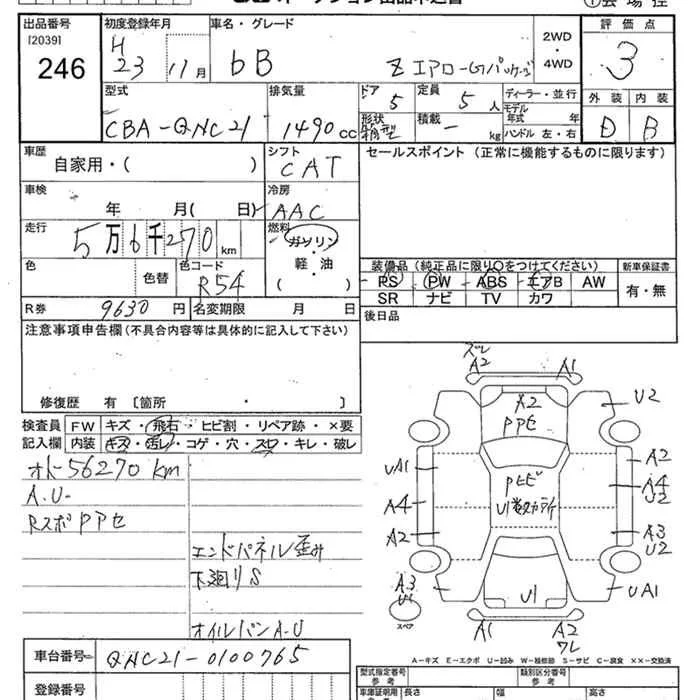 出品番号 初度登録年月 車名・グレード 2WD ・ 4WD 評価点
[2039] 246 H 23 11月 bB Z エアロ-Gパッケージ 3
型式 排気量 ドア 定員 ディーラー・並行 外装 内装
CBA-QNC21 1490cc 5 5人 モデル年式 年 D B
形状 箱型 積載 - kg ハンドル 左・右
車歴 シフト セールスポイント(正常に機能するものに限ります)
自家用・( ) CAT
車検 冷房
年 月(日) AAC
走行 燃料
5万6千270km ガソリン・軽油
色 色替 色コード R54 ( ) 装備品(純正品に限り○をつけてください) 新車保証書
PS PW ABS エアB AW 有・無
SR ナビ TV カワ
R券 9630円 名変期限 月 日 後日品
注意事項申告欄(不具合内容等は具体的に記入して下さい)
修復歴 有〔箇所 ・ 〕
検査員 FW キズ・飛石・ヒビ割・リペア跡・×要
記入欄 内装 キズ・汚レ・コゲ・穴・スレ・キレ・破レ
56270km
A.U-
エンドパネル歪み
下廻りS
オイルパンA.U
車台番号 QNC21-0100765
登録番号
ズレ
A2 A1
A2
U2
UA1
A4
A2
U1数カ所
A2
A4
U2
A3
U2
A3
U1
スペア
U1
UA1
A1 A2
ワレ
A-キズ E-エクボ U-凹み W-補修跡 S-サビ C-腐食 ××-交換済
型式指定番号 参考 類別区分番号 参考
車庫証明用 長さ 幅 高さ